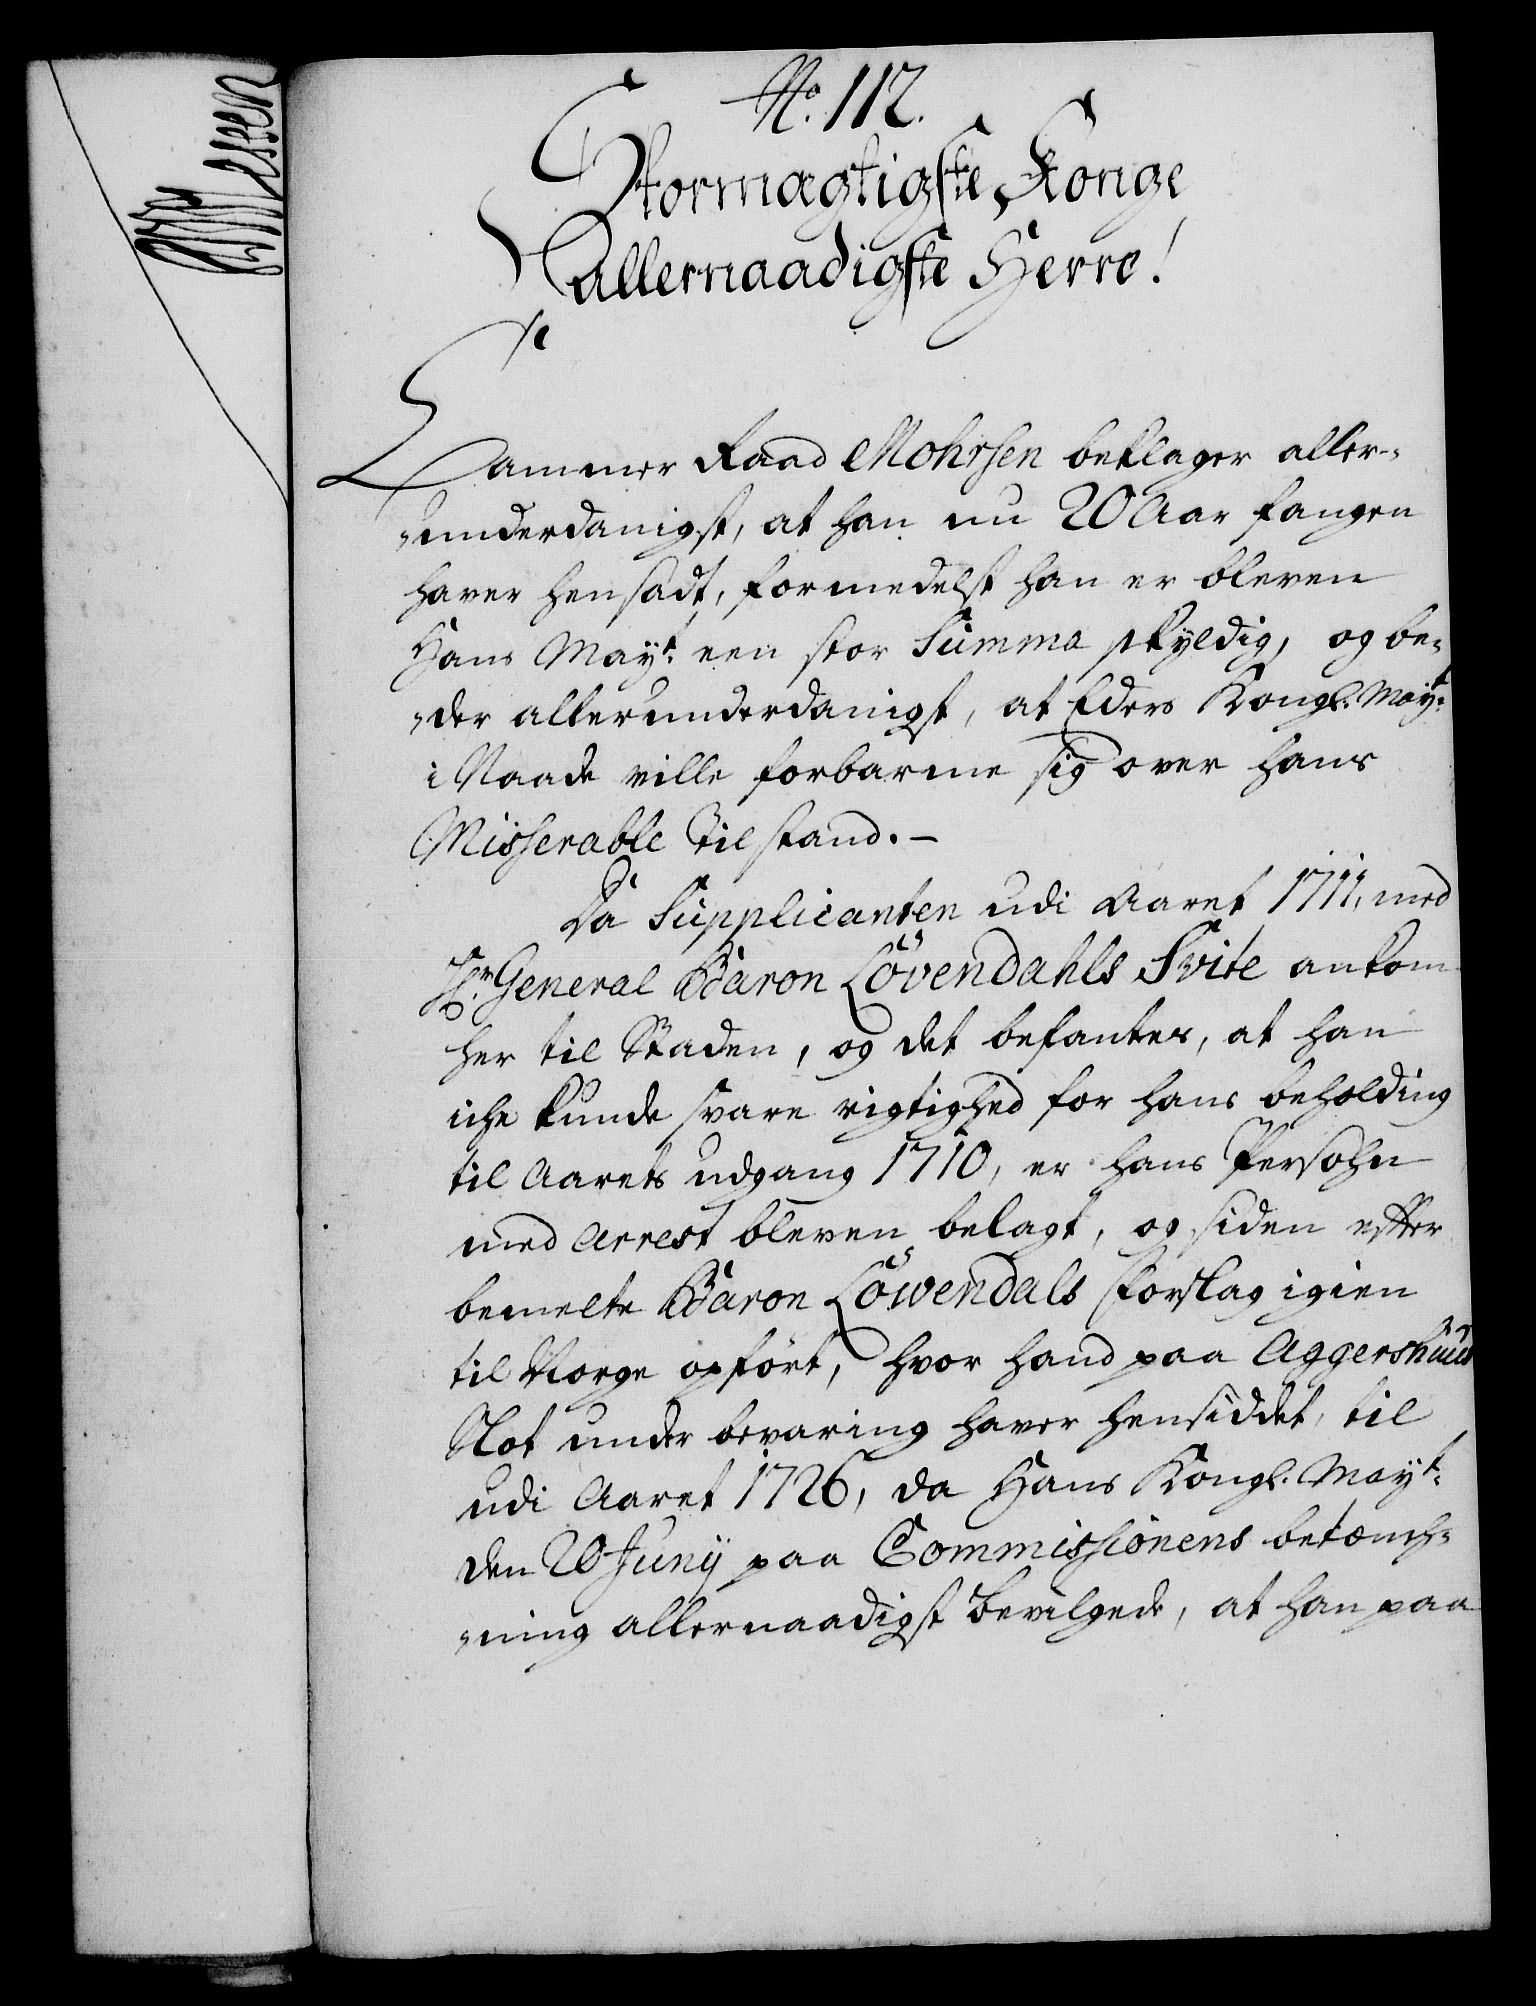 No. 112.
Stormægtigste Konge
Allernaadigste Herre!
Cammer Raad Mohrsen beklager aller-
underdanigst, at han nu 20 Aar fangen
haver hensadt, formedelst han er bleven
Hans Mayt. een stor Summa skyldig, og be-
der allerunderdanigst, at Eders Kongl. Mayt.
i Naade ville forbarme sig over hans
Misserable Tilstand.-
Da Supplicanten udi Aaret 1711, med
Hr. General Baron Lövendahls Svite ankom
her til Staden, og det befantes, at han
iche kunde svare rigtighed for hans beholding
til Aarets udgang 1710, er hans Persohn
med Arrest bleven belagt, og siden efter
bemelte Baron Löwendals forslag igien
til Norge opført, hvor hand paa Aggershuus
Slot under bevaring haver hensiddet, til
udi Aaret 1726, da Hans Kongl. Mayt.
den 20 Junij paa Commissionens betænch-
ning allernaadigst bevilgede, at han paa